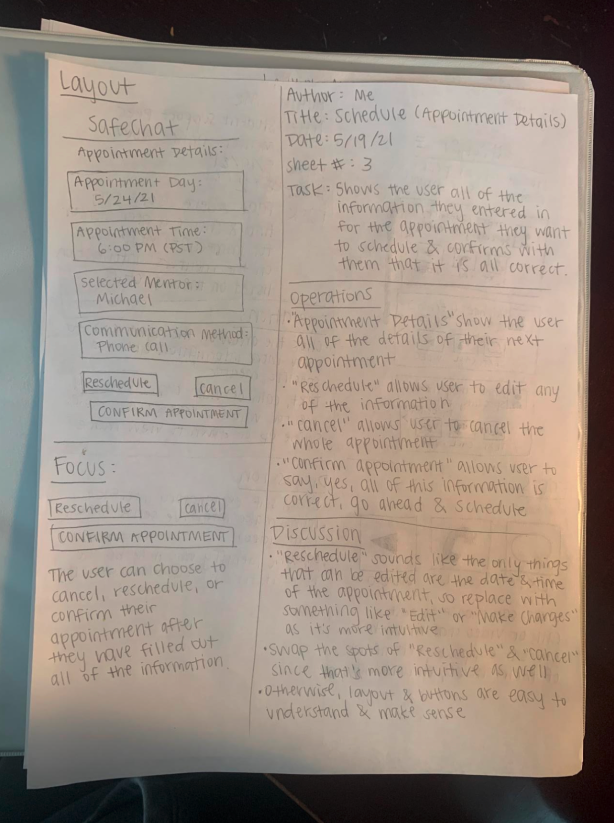 Layout
SafeChat
Appointment Details:
Appointment Day:
5/24/21
Appointment Time:
6:00 PM (PST)
Selected Mentor:
Michael
Communication Method:
Phone Call
Reschedule
Cancel
CONFIRM APPOINTMENT
Focus:
Reschedule
Cancel
CONFIRM APPOINTMENT
The user can choose to
cancel, reschedule, or
confirm their
appointment after
they have filled out
all of the information.
Author: Me
Title: Schedule (Appointment Details)
Date: 5/19/21
Sheet #: 3
Task: Shows the user all of the
information they entered in
for the appointment they want
to schedule & confirms with
them that it is all correct.
Operations
• "Appointment Details" show the user
all of the details of their next
appointment
• "Reschedule" allows user to edit any
of the information
• "Cancel" allows user to cancel the
whole appointment
• "Confirm appointment" allows user to
say, yes, all of this information is
correct, go ahead & schedule
Discussion
• "Reschedule" sounds like the only things
that can be edited are the date & time
of the appointment, so replace with
something like "Edit" or "Make Changes"
as it's more intuitive
• Swap the spots of "Reschedule" & "Cancel"
since that's more intuitive as well
• Otherwise, layout & buttons are easy to
understand & make sense